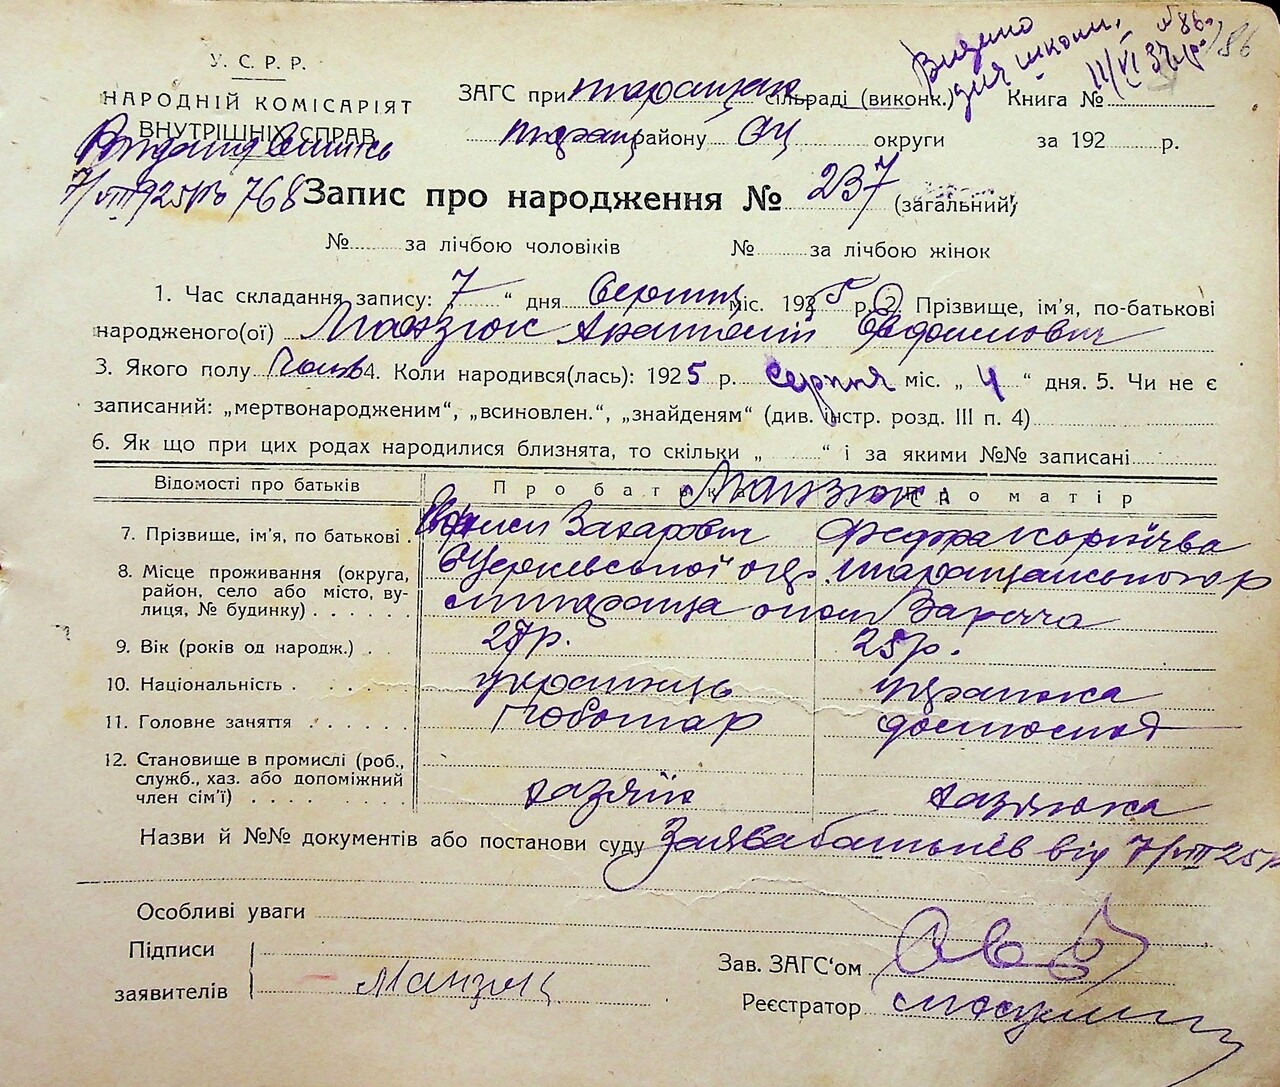 Видано
для школи,
№ 86
11/VI 37 р.
186
У. С. Р. Р.
НАРОДНІЙ КОМІСАРІЯТ
ВНУТРІШНІХ СПРАВ
7/VIII 925 р № 768
ЗАГС при Таращан. сільраді (виконк.) Книга №
Таращ району БЦ округи за 192 р.
Запис про народження № 237 (загальний)
№ за лічбою чоловіків № за лічбою жінок
1. Час складання запису: 7 " дня Серпня міс. 1925 р. 2. Прізвище, ім'я, по-батькові
народженого(ої) Манзюк Анатолій Евфимович
3. Якого полу 4. Коли народився(лась): 1925 р. серпня міс. „ 4 " дня. 5. Чи не є
записаний: „мертвонародженим", „всиновлен.", „знайденям" (див. інстр. розд. III п. 4)
6. Як що при цих родах народилися близнята, то скільки „ " і за якими №№ записані
Відомості про батьків Про батька Про матір
Манзюки
7. Прізвище, ім'я, по батькові Захарович Федора Корніївна
8. Місце проживання (округа, район, село або місто, вулиця, № будинку) БЦерківської окр. Таращанського р
м Тараща
9. Вік (років од народж.) 27 р. 25 р.
10. Національність українець українка
11. Головне заняття Чоботар домогосп
12. Становище в промислі (роб., служб., хаз. або допоміжний член сім'ї) хазяїн хазяйка
Назви й №№ документів або постанови суду Заява батьків від 7/VIII 25 р
Особливі уваги
Підписи
заявителів Манзюк
Зав. ЗАГС'ом
Реєстратор